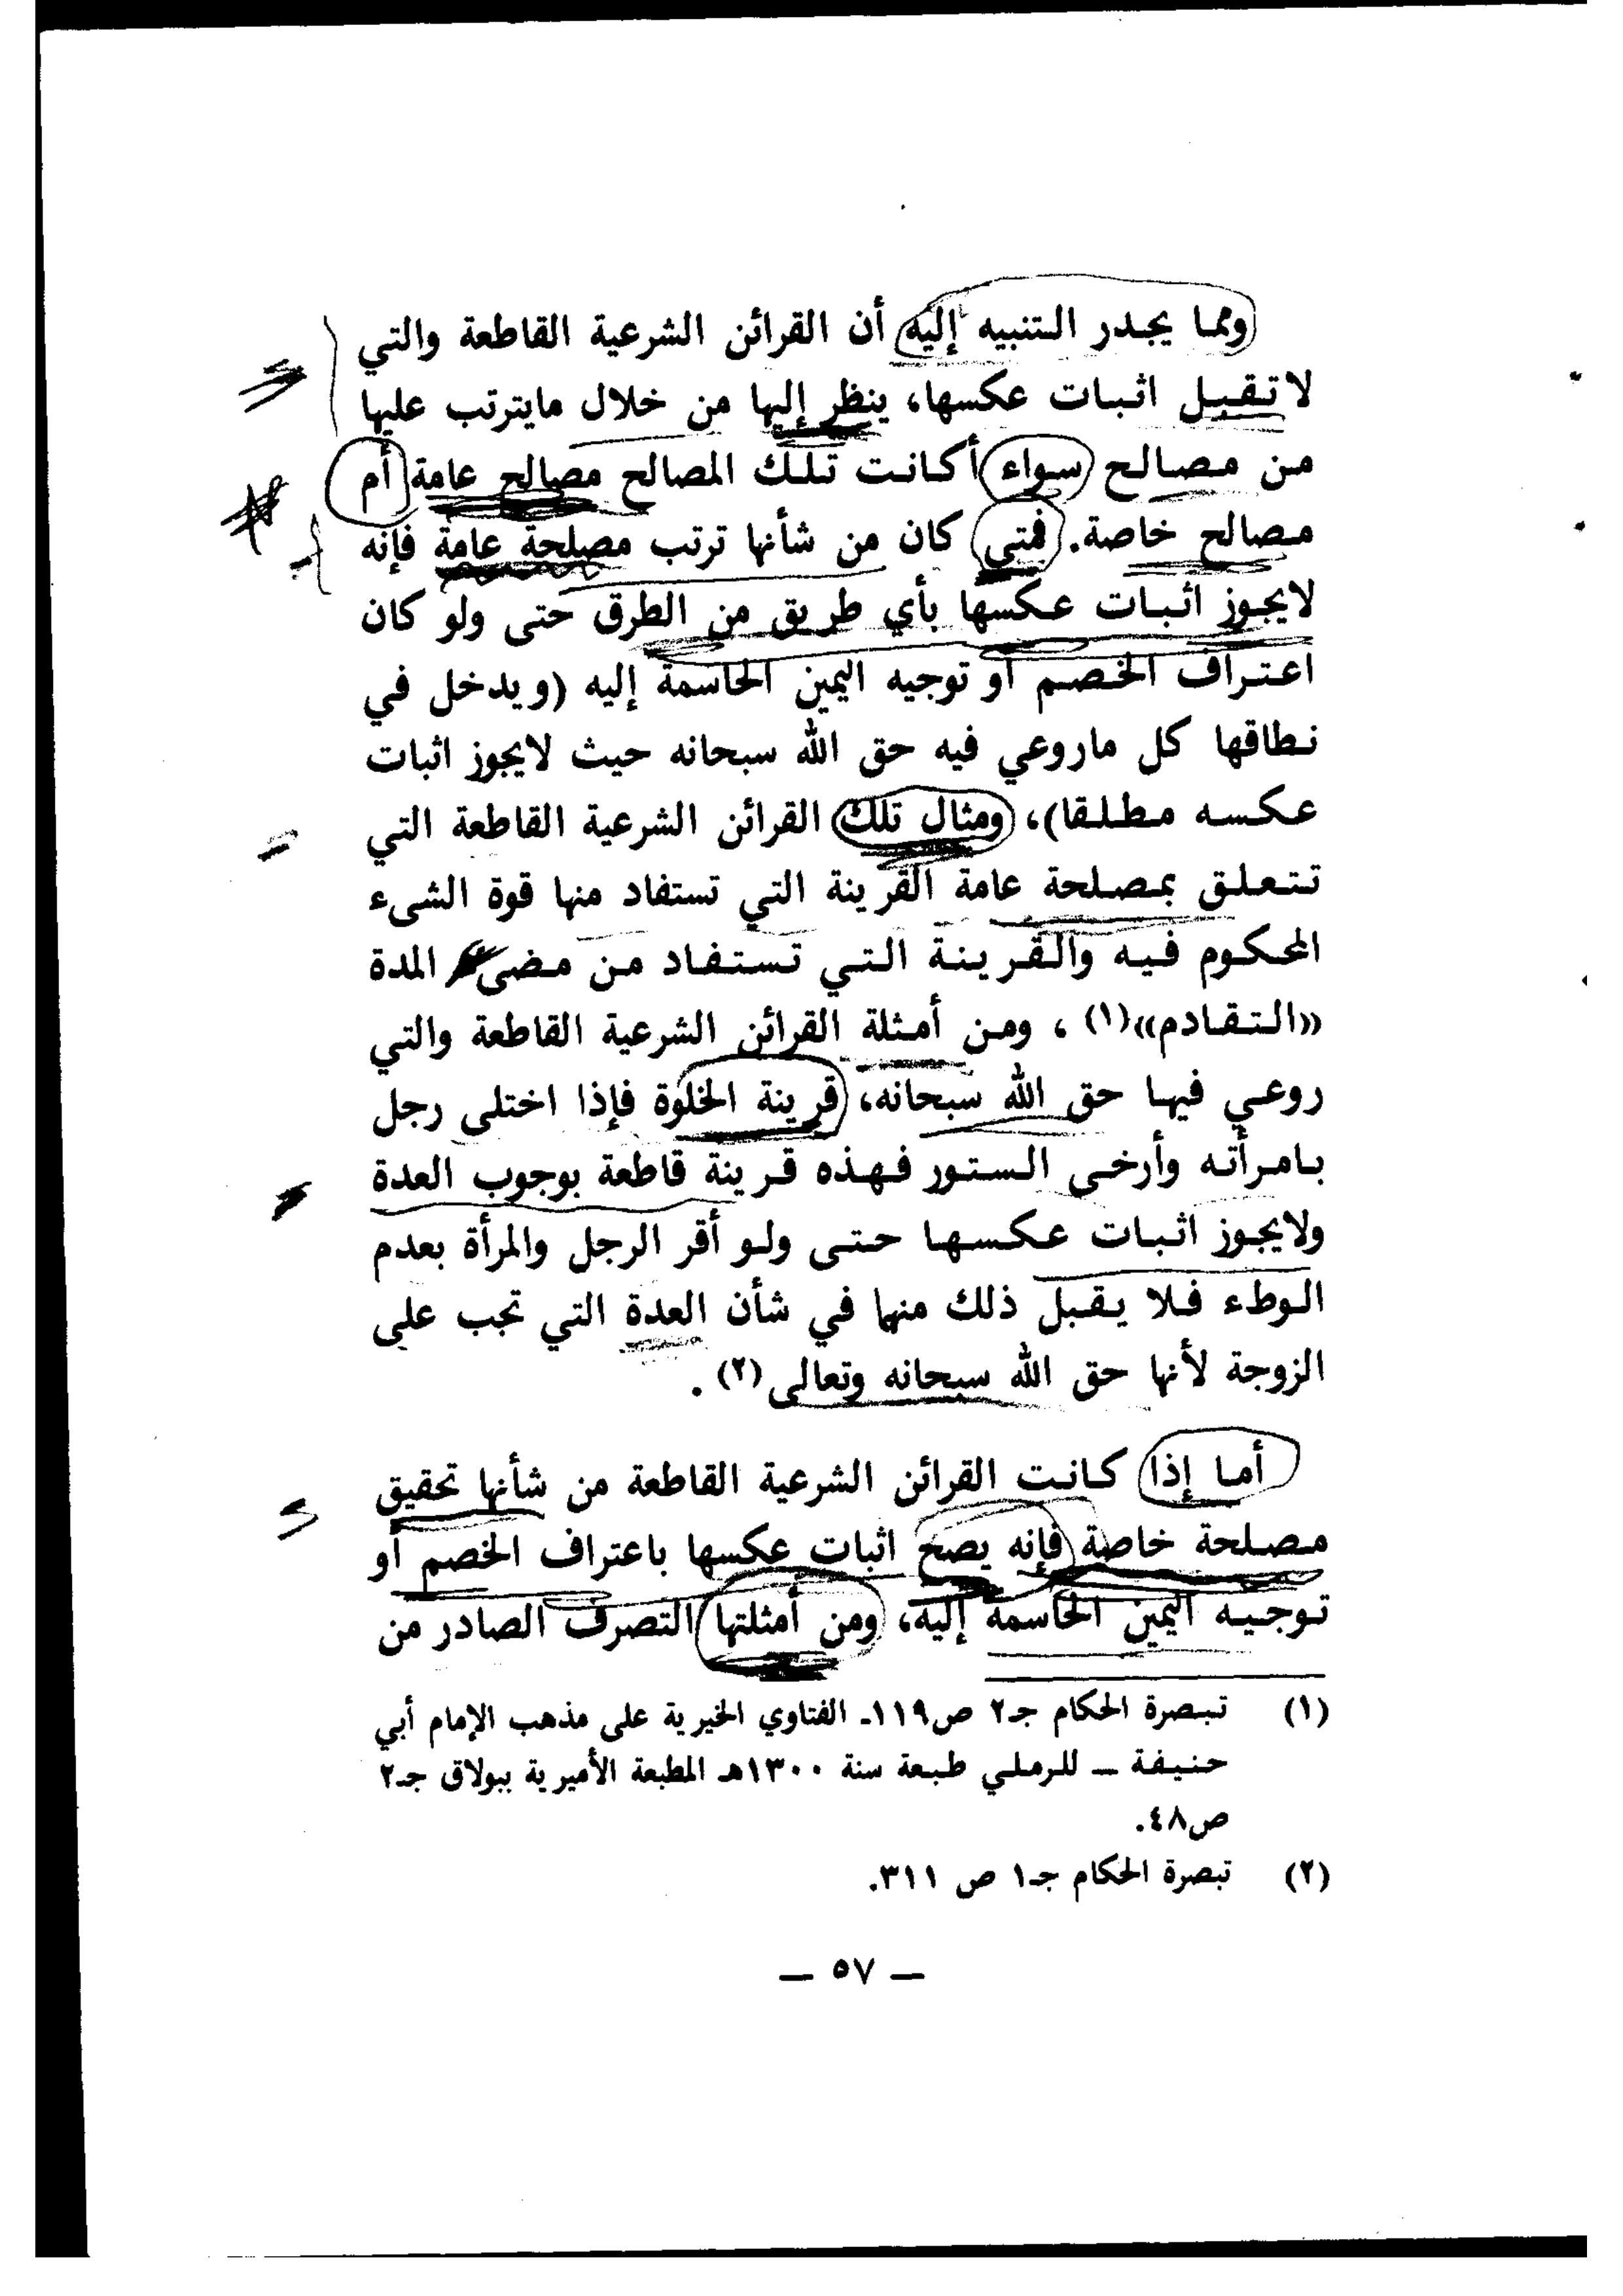 ومما يجدر التنبيه إليه أن القرائن الشرعية القاطعة والتي
لا تقبل اثبات عكسها، ينظر إليها من خلال مايترتب عليها
من مصالح سواء أكانت تلك المصالح مصالح عامة أم
مصالح خاصة. فمتى كان من شأنها ترتب مصلحة عامة فإنه
لايجوز اثبات عكسها بأي طريق من الطرق حتى ولو كان
اعتراف الخصم أو توجيه اليمين الحاسمة إليه (ويدخل في
نطاقها كل ماروعي فيه حق الله سبحانه حيث لايجوز اثبات
عكسه مطلقا)، ومثال تلك القرائن الشرعية القاطعة التي
تتعلق بمصلحة عامة القرينة التي تستفاد منها قوة الشىء
المحكوم فيه والقرينة التي تستفاد من مضى المدة
«التقادم»(١) ، ومن أمثلة القرائن الشرعية القاطعة والتي
روعي فيها حق الله سبحانه، قرينة الخلوة فإذا اختلى رجل
بامرأته وأرخى الستور فهذه قرينة قاطعة بوجوب العدة
ولايجوز اثبات عكسها حتى ولو أقر الرجل والمرأة بعدم
الوطء فلا يقبل ذلك منهما في شأن العدة التي تجب على
الزوجة لأنها حق الله سبحانه وتعالى(٢) .
أما إذا كانت القرائن الشرعية القاطعة من شأنها تحقيق
مصلحة خاصة فإنه يصح اثبات عكسها باعتراف الخصم أو
توجيه اليمين الحاسمة إليه، ومن أمثلتها التصرف الصادر من
(١) تبصرة الحكام جـ٢ ص١١٩ـ الفتاوي الخيرية على مذهب الإمام أبي
حنيفة ــ للرملي طبعة سنة ١٣٠٠هـ المطبعة الأميرية ببولاق جـ٢
ص٤٨.
(٢) تبصرة الحكام جـ١ ص ٣١١.
ــ ٥٧ ــ